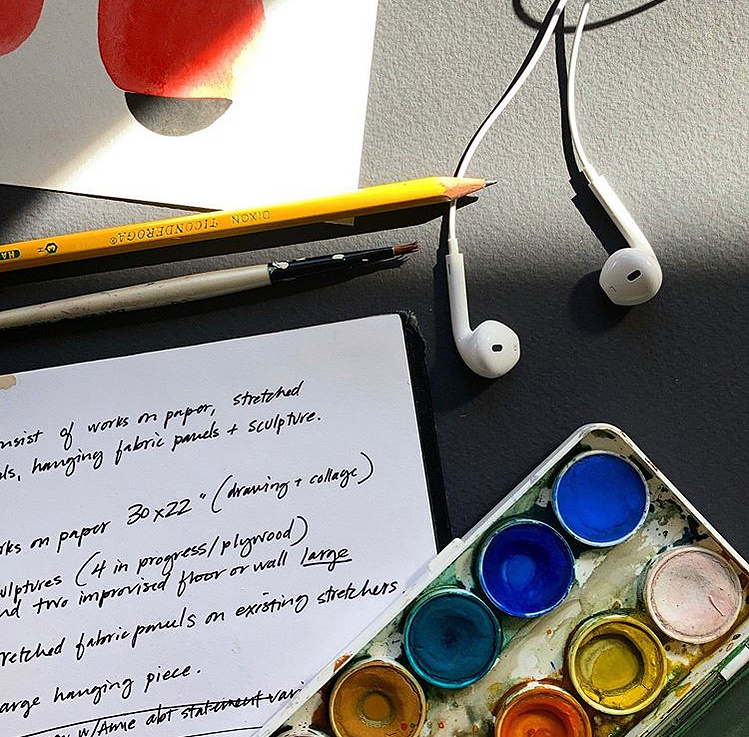 DIXON TICONDEROGA®
HB
nsist of works on paper, stretched
ls, hanging fabric panels + sculpture.
rks on paper 30x22" (drawing + collage)
ulptures (4 in progress/plywood)
nd two improvised floor or wall large
retched fabric panels on existing stretchers.
arge hanging piece.
w/Anne abt statement vari